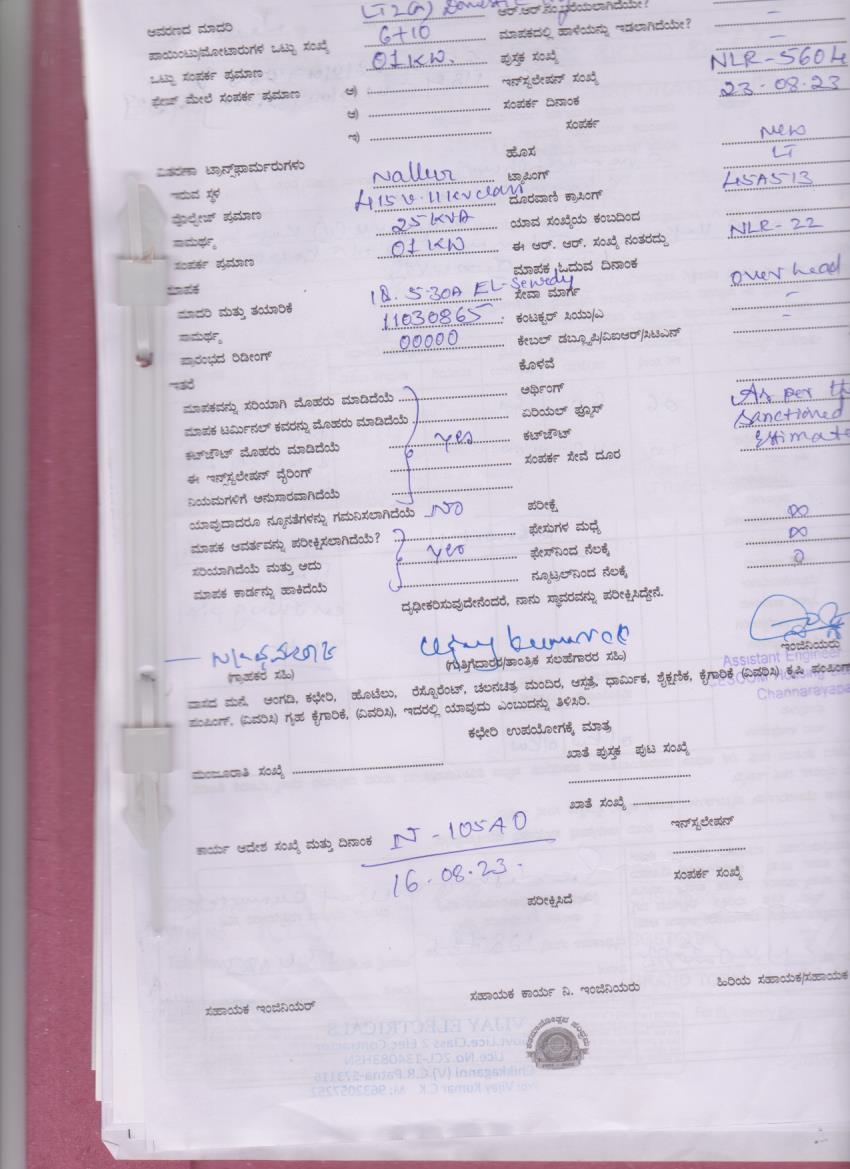 LT2(a) Domestic
ಆವರಣದ ಮಾದರಿ
ಆರ್.ಆರ್.ನಂ. ಬರೆಯಲಾಗಿದೆಯೇ? –
ಪಾಯಿಂಟು/ಮೋಟಾರುಗಳ ಒಟ್ಟು ಸಂಖ್ಯೆ 6+10 ಮಾಪಕದಲ್ಲಿ ಹಾಳೆಯನ್ನು ಇಡಲಾಗಿದೆಯೇ? –
ಒಟ್ಟು ಸಂಪರ್ಕ ಪ್ರಮಾಣ 01 KW. ಪುಸ್ತಕ ಸಂಖ್ಯೆ
ಫೇಜ್ ಮೇಲೆ ಸಂಪರ್ಕ ಪ್ರಮಾಣ ಅ) ಇನ್‌ಸ್ಟಲೇಷನ್ ಸಂಖ್ಯೆ NLR-5604
ಆ) ಸಂಪರ್ಕ ದಿನಾಂಕ 23-08-23
ಇ) ಸಂಪರ್ಕ
ವಿತರಣಾ ಟ್ರಾನ್ಸ್‌ಫಾರ್ಮರುಗಳು ಹೊಸ New
ಇರುವ ಸ್ಥಳ Nallur ಟ್ಯಾಪಿಂಗ್ LT
ವೋಲ್ಟೇಜ್ ಪ್ರಮಾಣ 415V-11KV class ದೂರವಾಣಿ ಕ್ರಾಸಿಂಗ್
ಸಾಮರ್ಥ್ಯ 25 KVA ಯಾವ ಸಂಖ್ಯೆಯ ಕಂಬದಿಂದ 45A513
ಸಂಪರ್ಕ ಪ್ರಮಾಣ 01 KW ಈ ಆರ್. ಆರ್. ಸಂಖ್ಯೆ ನಂತರದ್ದು
ಮಾಪಕ ಮಾಪಕ ಓದುವ ದಿನಾಂಕ NLR-22
ಮಾದರಿ ಮತ್ತು ತಯಾರಿಕೆ 5-30A EL-Sewedy ಸೇವಾ ಮಾರ್ಗ over head
ಸಾಮರ್ಥ್ಯ 11030865 ಕಂಟಕ್ಟರ್ ಸಿಯು/ಎ –
ಪ್ರಾರಂಭದ ರಿಡೀಂಗ್ 00000 ಕೇಬಲ್ ಡಬ್ಲ್ಯೂಪಿ/ವಿಐಆರ್/ಸಿಟಿಎನ್ –
ಇತರೆ ಕೊಳವೆ
ಮಾಪಕವನ್ನು ಸರಿಯಾಗಿ ಮೊಹರು ಮಾಡಿದೆಯೆ ಅರ್ಥಿಂಗ್
ಮಾಪಕ ಟರ್ಮಿನಲ್ ಕವರನ್ನು ಮೊಹರು ಮಾಡಿದೆಯೆ ಏರಿಯಲ್ ಫ್ಯೂಸ್ As per th
ಕಟ್‌ಔಟ್ ಮೊಹರು ಮಾಡಿದೆಯೆ yes ಕಟ್‌ಔಟ್ Sanctioned
ಈ ಇನ್‌ಸ್ಟಲೇಷನ್ ವೈರಿಂಗ್ ಸಂಪರ್ಕ ಸೇವೆ ದೂರ Estimate
ನಿಯಮಗಳಿಗೆ ಅನುಸಾರವಾಗಿದೆಯೆ
ಯಾವುದಾದರೂ ನ್ಯೂನತೆಗಳನ್ನು ಗಮನಿಸಲಾಗಿದೆಯೆ NO ಪರೀಕ್ಷೆ
ಮಾಪಕ ಆವರ್ತವನ್ನು ಪರೀಕ್ಷಿಸಲಾಗಿದೆಯೆ? ಫೇಸುಗಳ ಮಧ್ಯೆ ∞
ಸರಿಯಾಗಿದೆಯೆ ಮತ್ತು ಅದು yes ಫೇಸ್‌ನಿಂದ ನೆಲಕ್ಕೆ ∞
ಮಾಪಕ ಕಾರ್ಡನ್ನು ಹಾಕಿದೆಯೆ ನ್ಯೂಟ್ರಲ್‌ನಿಂದ ನೆಲಕ್ಕೆ 0
ದೃಢೀಕರಿಸುವುದೇನೆಂದರೆ, ನಾನು ಸ್ಥಾವರವನ್ನು ಪರೀಕ್ಷಿಸಿದ್ದೇನೆ.
Vijay Kumar C K
(ಗ್ರಾಹಕರ ಸಹಿ) (ಗುತ್ತಿಗೆದಾರರ/ತಾಂತ್ರಿಕ ಸಲಹೆಗಾರರ ಸಹಿ) ಇಂಜಿನಿಯರು
Assistant Engineer
Channarayapa
ವಾಸದ ಮನೆ, ಅಂಗಡಿ, ಕಛೇರಿ, ಹೊಟೆಲು, ರೆಸ್ಟೋರೆಂಟ್, ಚಲನಚಿತ್ರ ಮಂದಿರ, ಆಸ್ಪತ್ರೆ, ಧಾರ್ಮಿಕ, ಶೈಕ್ಷಣಿಕ, ಕೈಗಾರಿಕೆ (ವಿವರಿಸಿ) ಕೃಷಿ ಪಂಪಿಂಗ್
ಪಂಪಿಂಗ್, (ವಿವರಿಸಿ) ಗೃಹ ಕೈಗಾರಿಕೆ, (ವಿವರಿಸಿ), ಇದರಲ್ಲಿ ಯಾವುದು ಎಂಬುದನ್ನು ತಿಳಿಸಿರಿ.
ಕಛೇರಿ ಉಪಯೋಗಕ್ಕೆ ಮಾತ್ರ
ಮಂಜೂರಾತಿ ಸಂಖ್ಯೆ ಖಾತೆ ಪುಸ್ತಕ ಪುಟ ಸಂಖ್ಯೆ
ಖಾತೆ ಸಂಖ್ಯೆ
ಕಾರ್ಯ ಆದೇಶ ಸಂಖ್ಯೆ ಮತ್ತು ದಿನಾಂಕ N-105A0 ಇನ್‌ಸ್ಟಲೇಷನ್
16-08-23 ಸಂಪರ್ಕ ಸಂಖ್ಯೆ
ಪರೀಕ್ಷಿಸಿದೆ
ಸಹಾಯಕ ಇಂಜಿನಿಯರ್ ಸಹಾಯಕ ಕಾರ್ಯ ನಿ. ಇಂಜಿನಿಯರು ಹಿರಿಯ ಸಹಾಯಕ/ಸಹಾಯಕ
VIJAY ELECTRICALS
Govt.Lice.Class 2 Elec.Contractor
Lice.No.2CL-134083HSN
Chikkaganni (V) C.R.Patna-573116
Vijay Kumar C.K M: 9632057252